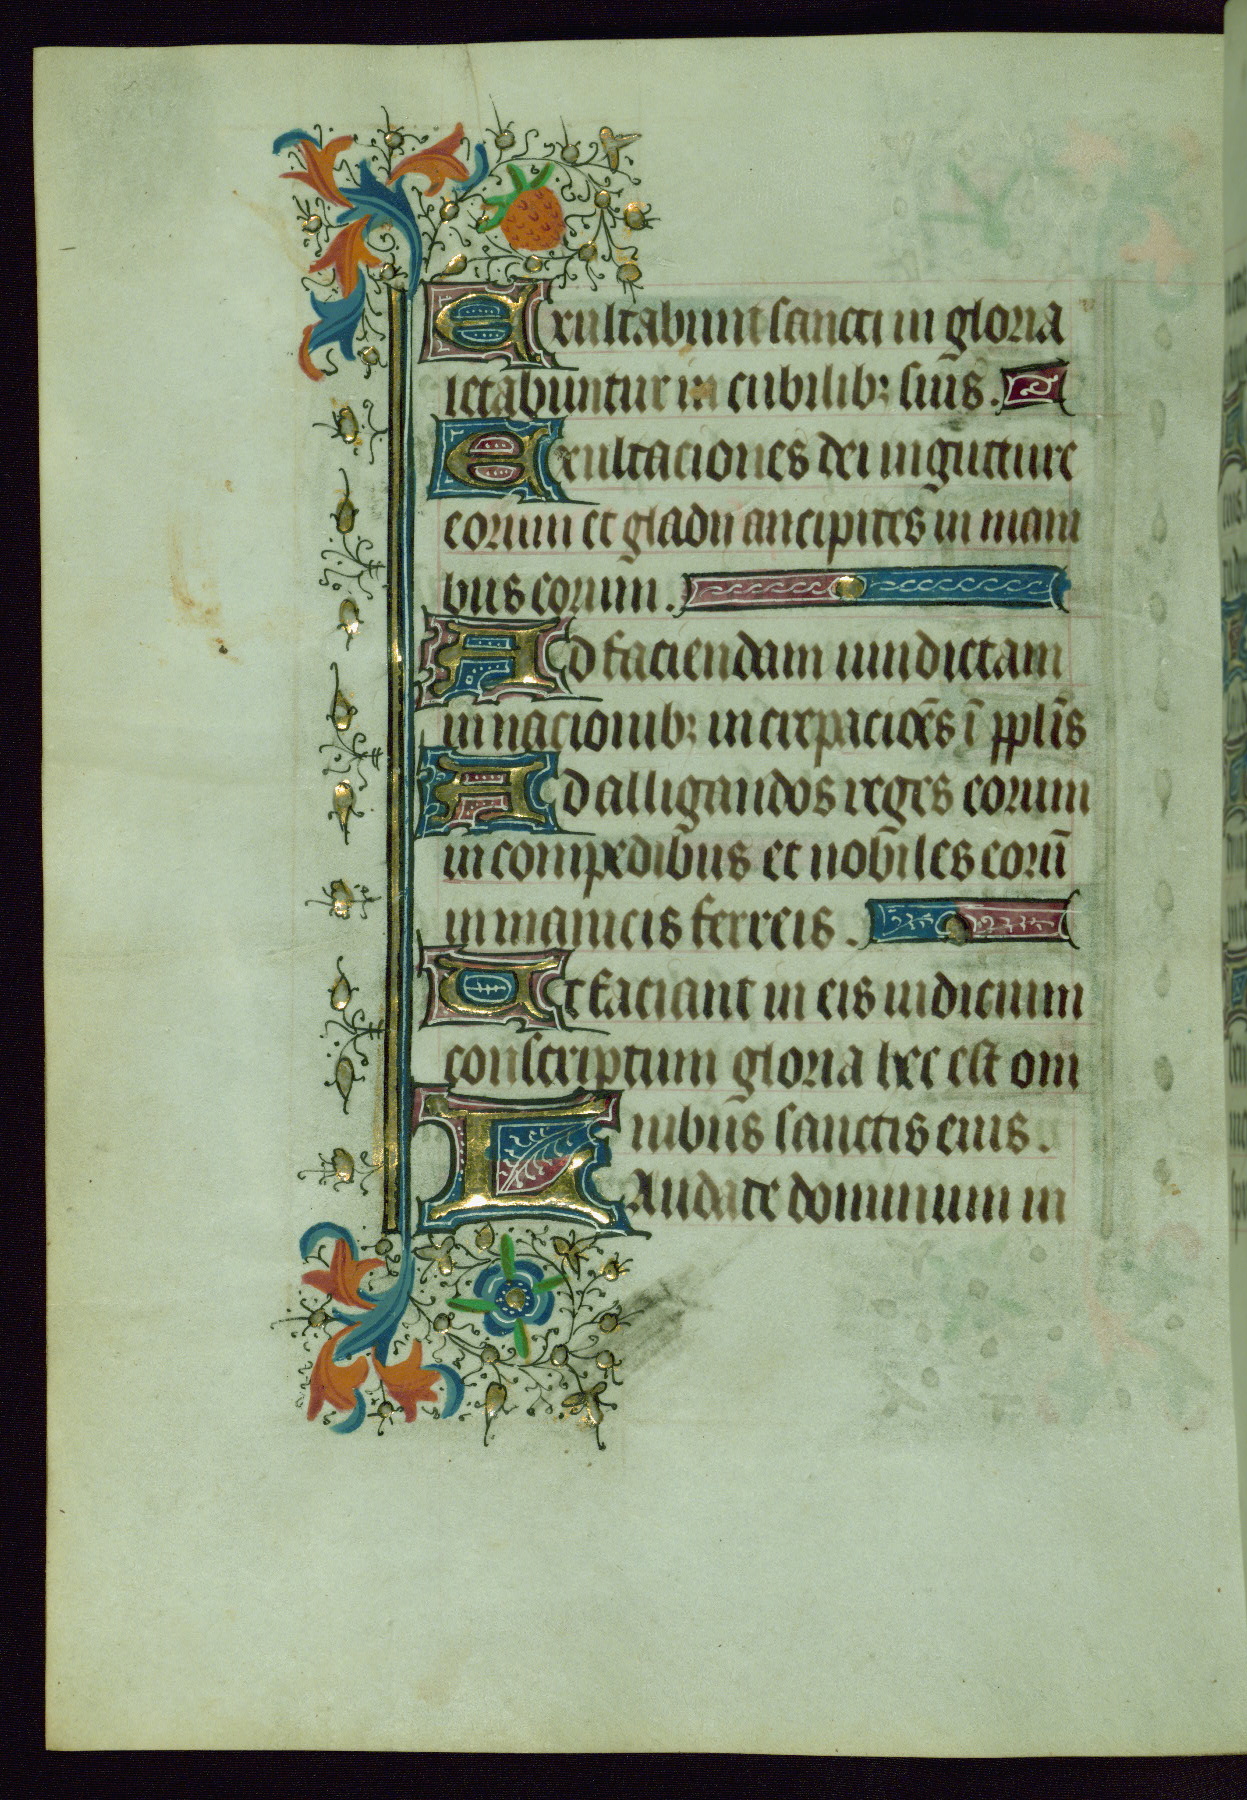 Exultabunt sancti in gloria
letabuntur in cubilibꝫ suis.
Exultaciones dei in gutture
eorum et gladii ancipites in mani
bus eorum.
Ad faciendam uindictam
in nacionibꝫ increpacio̅es i̅ pp̅lis
Ad alligandos reges eorum
in compedibus et nobiles eoru̅
in manicis ferreis.
Ut faciant in eis iudicium
conscriptum gloria hec est om
nibus sanctis eius.
LAudate dominum in